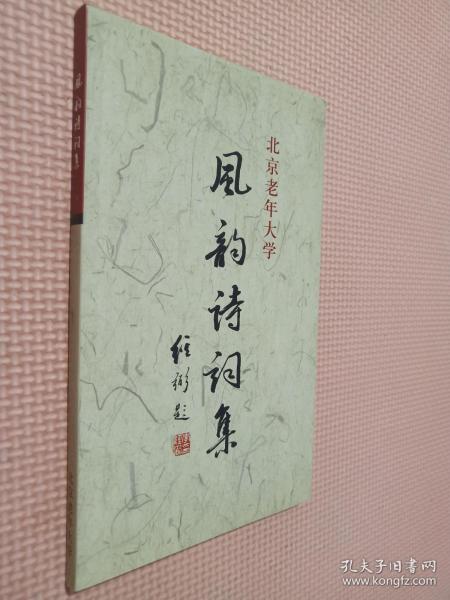 北京老年大学
風韵诗词集
题
風韵诗词集
孔夫子旧书网
www.kongfz.com